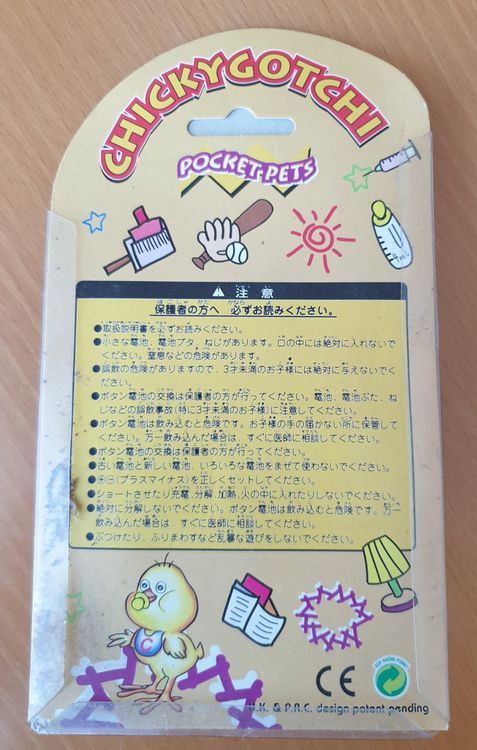 CHICKYGOTCHI
POCKET-PETS
注意
保護者の方へ 必ずお読みください。
●取扱説明書を必ずお読みください。
●小さな電池、電池ブタ、ねじがあります。口の中には絶対に入れないで
ください。窒息などの危険があります。
●誤飲の危険がありますので、3才未満のお子様には絶対に与えないでく
ださい。
●ボタン電池の交換は保護者の方が行ってください。電池、電池ぶた、ね
じなどの誤飲事故(特に3才未満のお子様)に注意してください。
●ボタン電池は飲み込むと危険です。お子様の手の届かない所に保管して
ください。万一飲み込んだ場合は、すぐに医師に相談してください。
●ボタン電池の交換は保護者の方が行ってください。
●古い電池と新しい電池、いろいろな電池をまぜて使わないでください。
●⊕⊖(プラスマイナス)を正しくセットしてください。
●ショートさせたり充電、分解、加熱、火の中に入れたりしないでください。
●絶対に分解しないでください。ボタン電池は飲み込むと危険です。万一
飲み込んだ場合は、すぐに医師に相談してください。
●ぶつけたり、ふりまわすなど乱暴な遊びをしないでください。
C
CE
DER GRÜNE PUNKT
H.K. & P.R.C. design patent pending